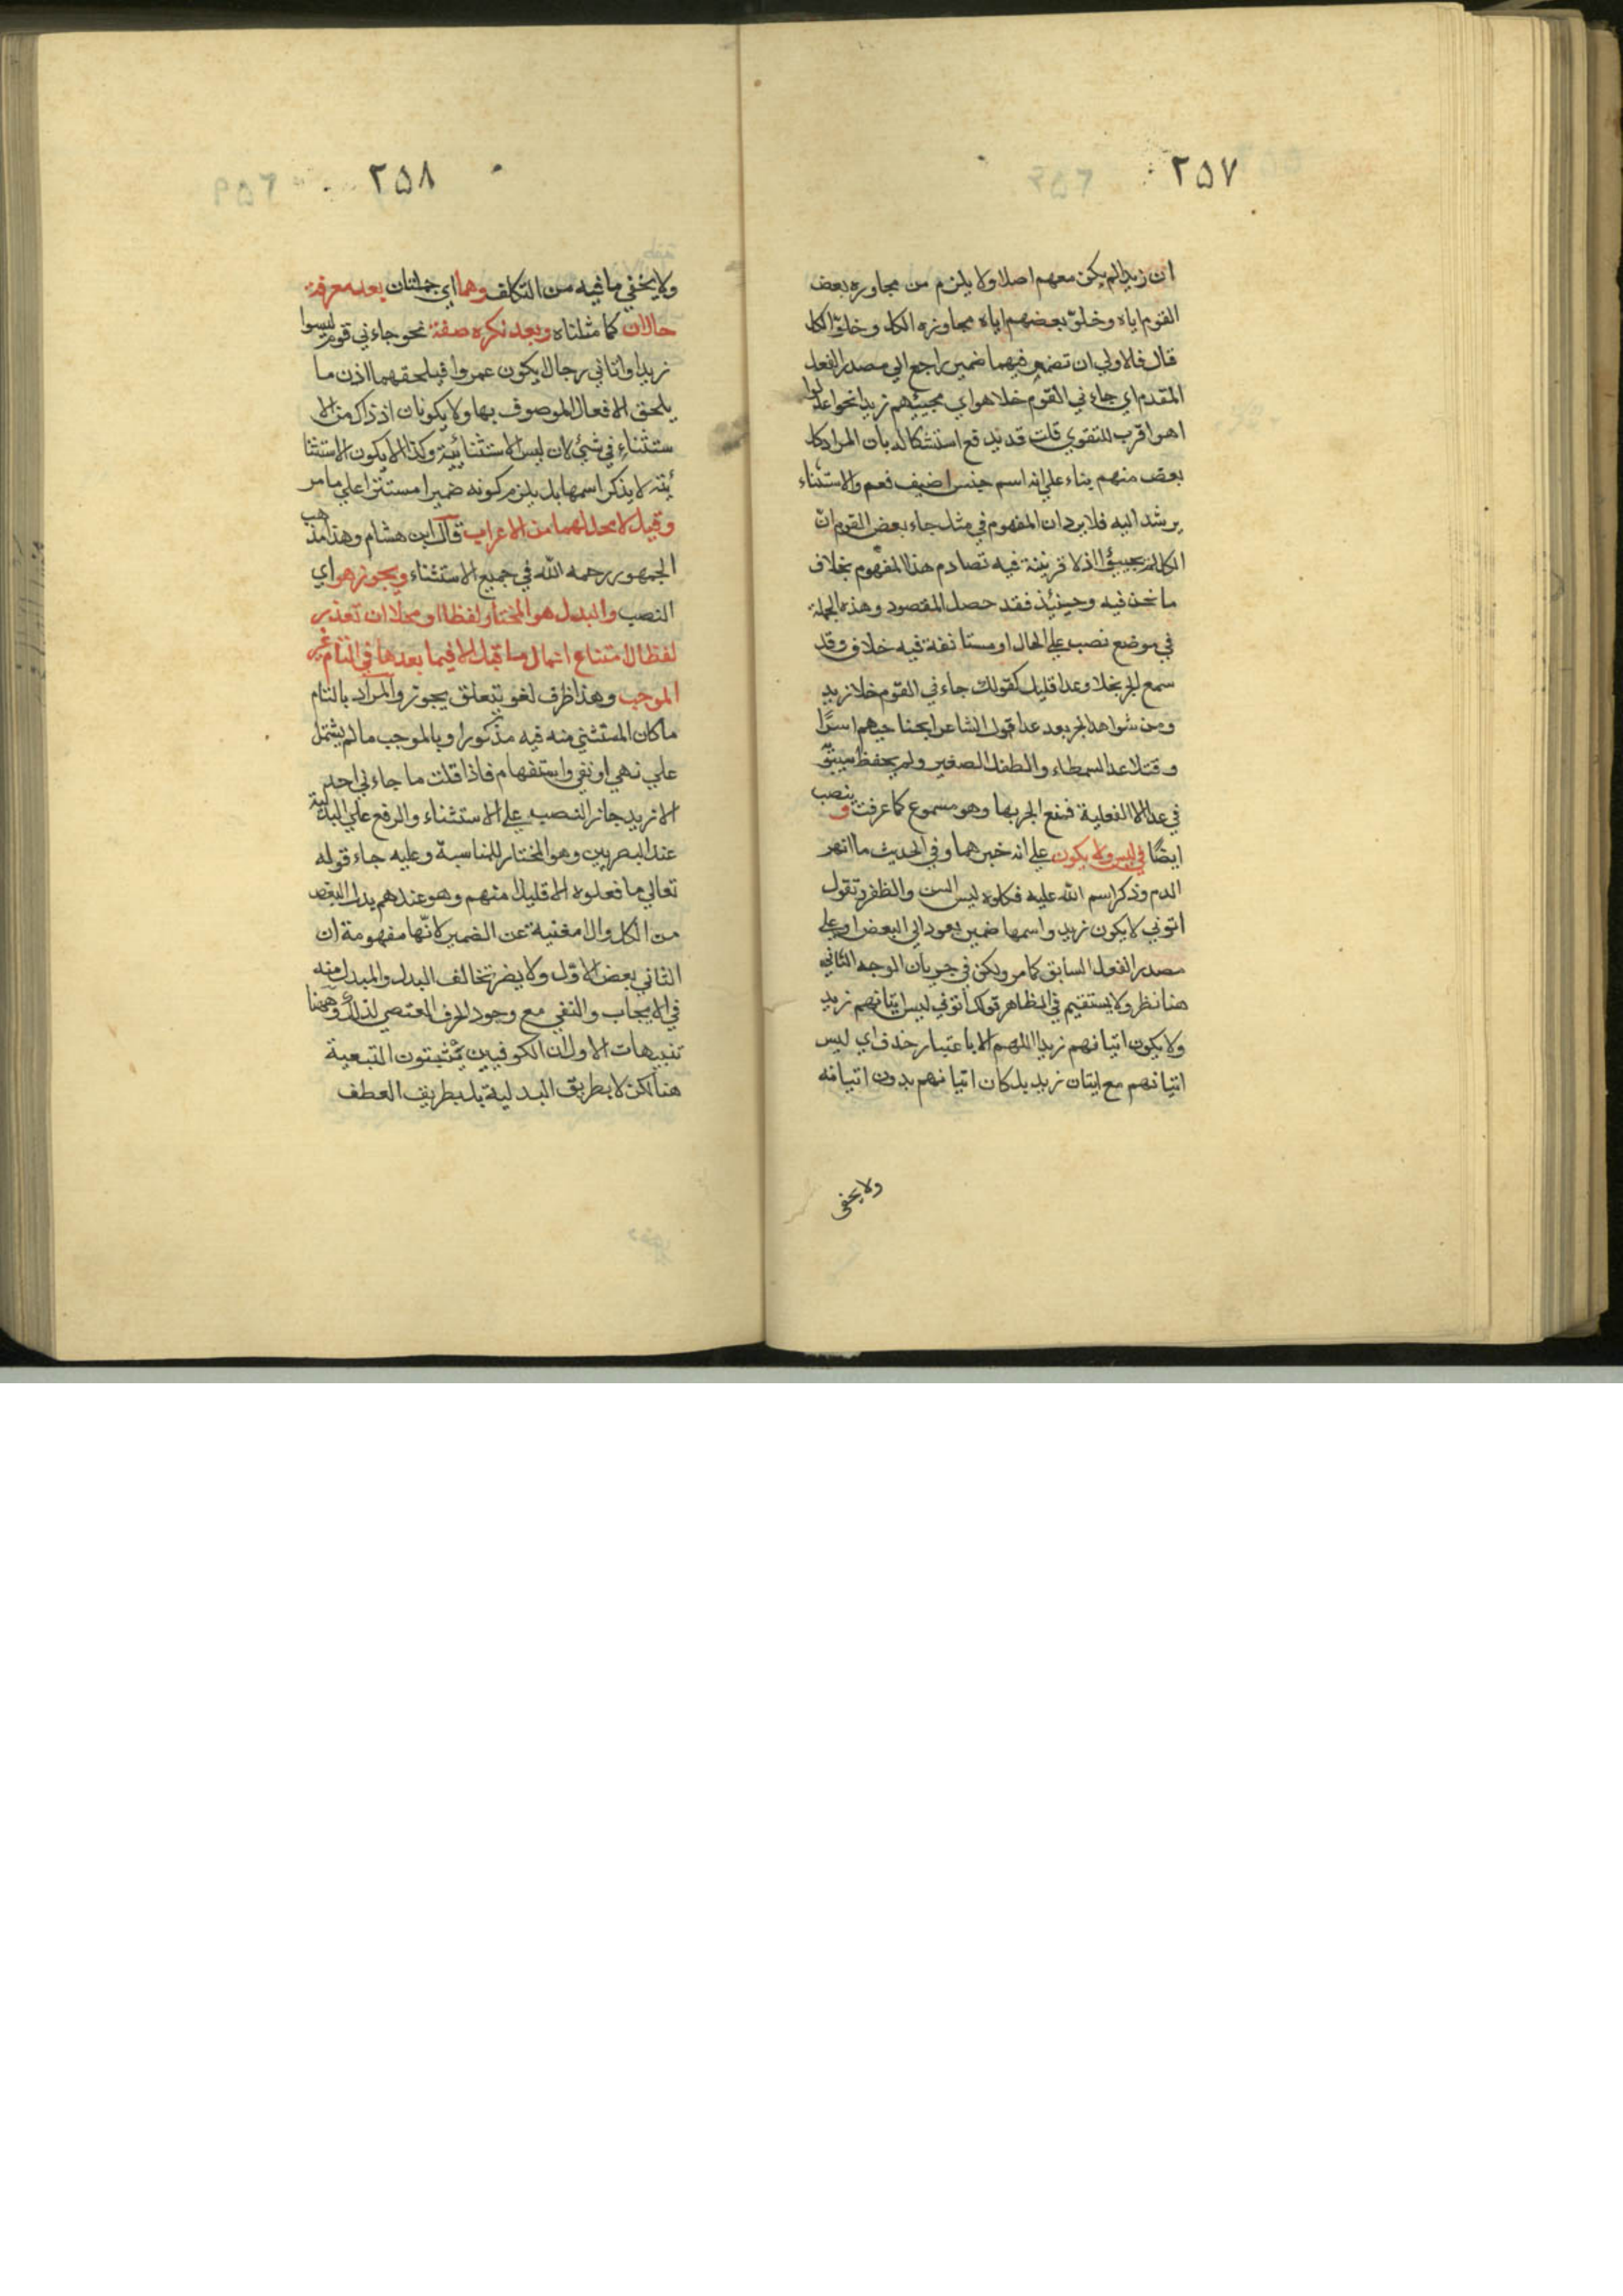 ٢٥٧
ان زيدا لم يكن معهم اصلا ولا يلزم من مجاوزه بعض
القوم اياه وخلوّ بعضهم اياه مجاوزه الكل وخلوّ الكل
قال فالاولي ان تضمر فيهما ضمير راجع الي مصدر الفعل
المقدم اي جاءني القوم خلا هو اي مجيئهم زيدا نحو اعدلوا
هو اقرب للتقوي قلت قد يدفع استشكاله بان المراد كل
بعض منهم بناء علي انه اسم جنس اضيف فعم والاستثناء
يرشد اليه فلا يرد ان المفهوم في مثل جاء بعض القوم انّ
الكل لم يجيئوا اذ لا قرينة فيه تصادم هذا المفهوم بخلاف
ما نحن فيه وحينئذ فقد حصل المقصود وهذه الجملة
في موضع نصب علي الحال او مستانفة فيه خلاف وقد
سمع الجر بخلا وعدا قليل كقولك جاءني القوم خلا زيد
ومن شواهد الجر بعد عدا قول الشاعر ابحنا حيهم اسرًا
وقتلا عدا الشمطاء والطفل الصغير ولم يحفظ سيبو
في عدا الا الفعلية فمنع الجر بها وهو مسموع كما عرفت و ينصب
ايضًا في ليس ولا يكون علي انه خبرهما وفي الحديث ما انهر
الدم وذكر اسم الله عليه فكلوه ليس السن والظفر وتقول
اتوني لا يكون زيد واسمها ضمير يعود الي البعض او علي
مصدر الفعل السابق كما مر ولكن في جريان الوجه الثاني
هنا نظر ولا يستقيم في الظاهر قولك أتوني ليس اتيانهم زيد
ولا يكون اتيانهم زيدا اللهم الا باعتبار حذف اي ليس
اتيانهم مع ايتان زيد بل كان اتيانهم بدون اتيانه
ولا يخفى
٢٥٨
ولا يخفي ما فيه من التكلف وهما اي جملتان بعد معرفة
حالان كما مثلناه وبعد نكره صفة نحو جاءني قوم ليسوا
زيدا واتاني رجال لا يكون عمروا فيلحقهما اذن ما
يلحق الافعال الموصوف بها ولا يكونان اذ ذاك من الا
ستثناء في شيئ لان ليس الاستثنائية وكذا لا يكون الاستثنا
ئية لا يذكر اسمها بل يلزم كونه ضميرا مستترا علي ما مر
وقيل لا محل لهما من الاعراب قال ابن هشام وهذا مذهب
الجمهور رحمه الله في جميع الاستثناء ويجوز هو اي
النصب والبدل هو المختار لفظا او محلا ان تعذر
لفظا لامتناع اعمال ما قبل الا فيما بعدها في التام غير
الموجب وهذا ظرف لغو يتعلق بيجوز والمراد بالتام
ما كان المستثني منه فيه مذكورا وبالموجب ما لم يشتمل
علي نهي او نفي واستفهام فاذا قلت ما جاءني احد
الا زيد جاز النصب علي الاستثناء والرفع علي البدلية
عند البصريين وهو المختار للمناسبة وعليه جاء قوله
تعالي ما فعلوه الا قليلا منهم وهو عندهم بدل البعض
من الكل والا مغنية عن الضمير لانّها مفهومة ان
الثاني بعض الاوّل ولا يضر تخالف البدل والمبدل منه
في الايجاب والنفي مع وجود الحرف المقتضي لذلك وههنا
تنبيهات الاول ان الكوفيين يثبتون التبعية
هنا لكن لا بطريق البدلية بل بطريق العطف